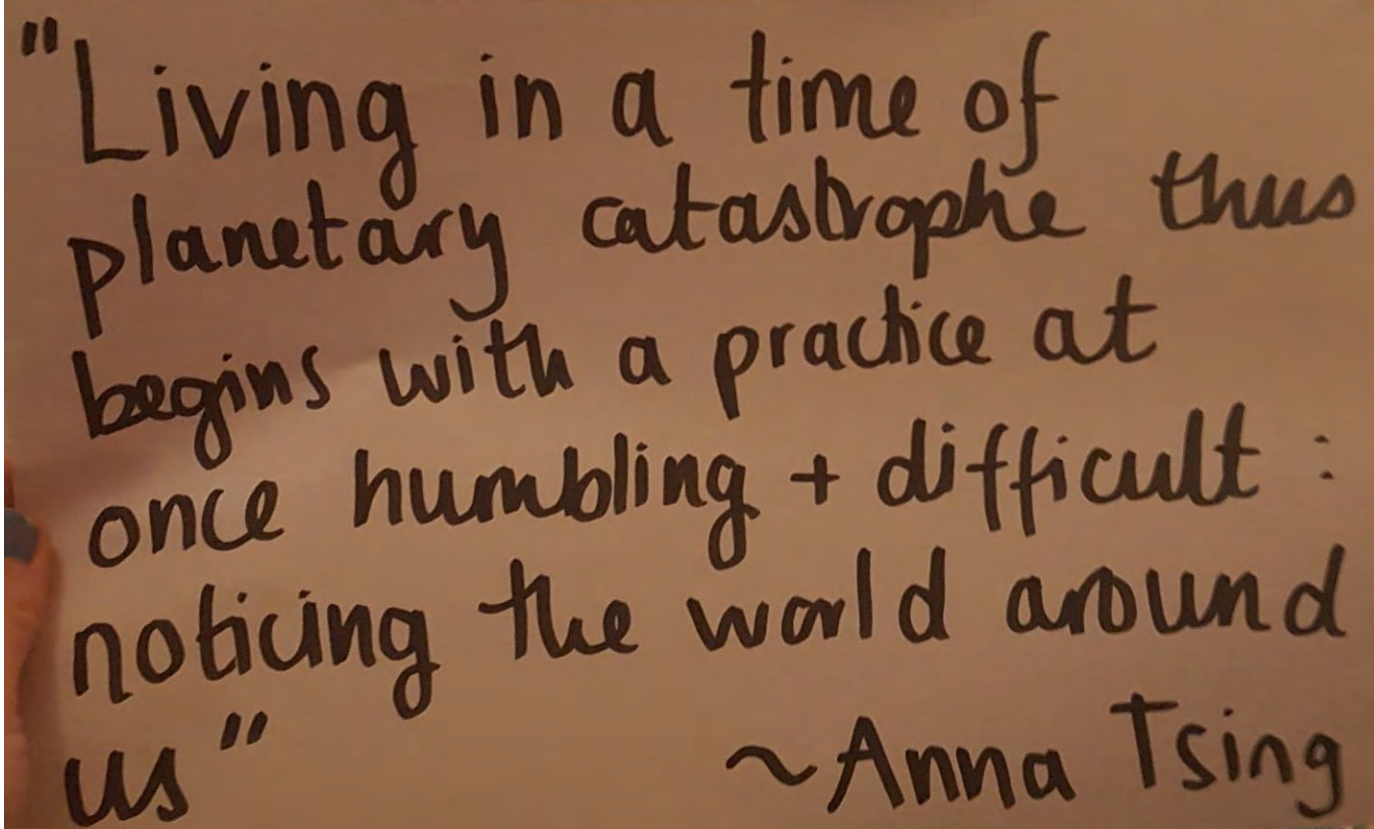 "Living in a time of
planetary catastrophe thus
begins with a practice at
once humbling + difficult :
noticing the world around
us"
~Anna Tsing